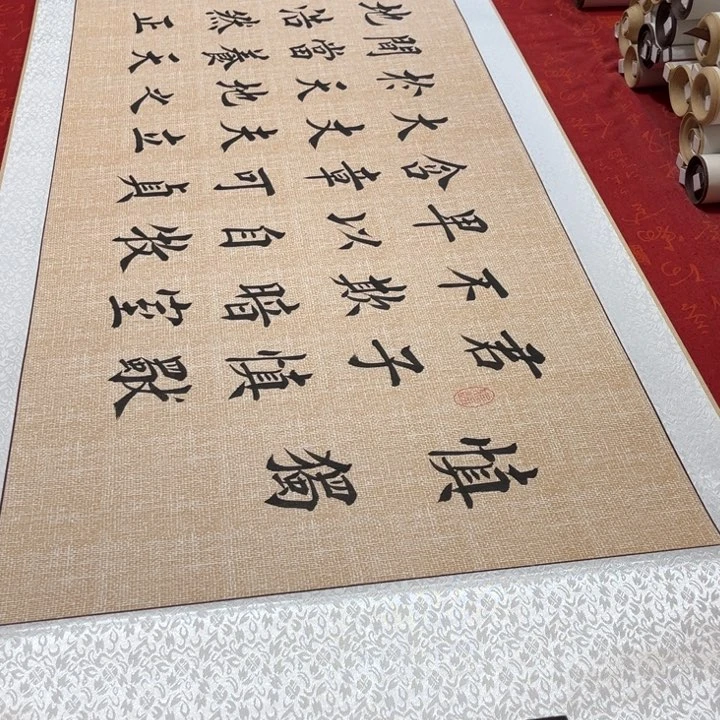 慎獨
君子慎
不欺暗室
卑以自牧
含章可貞
大丈夫立
於天地之
間當養天
地浩然正